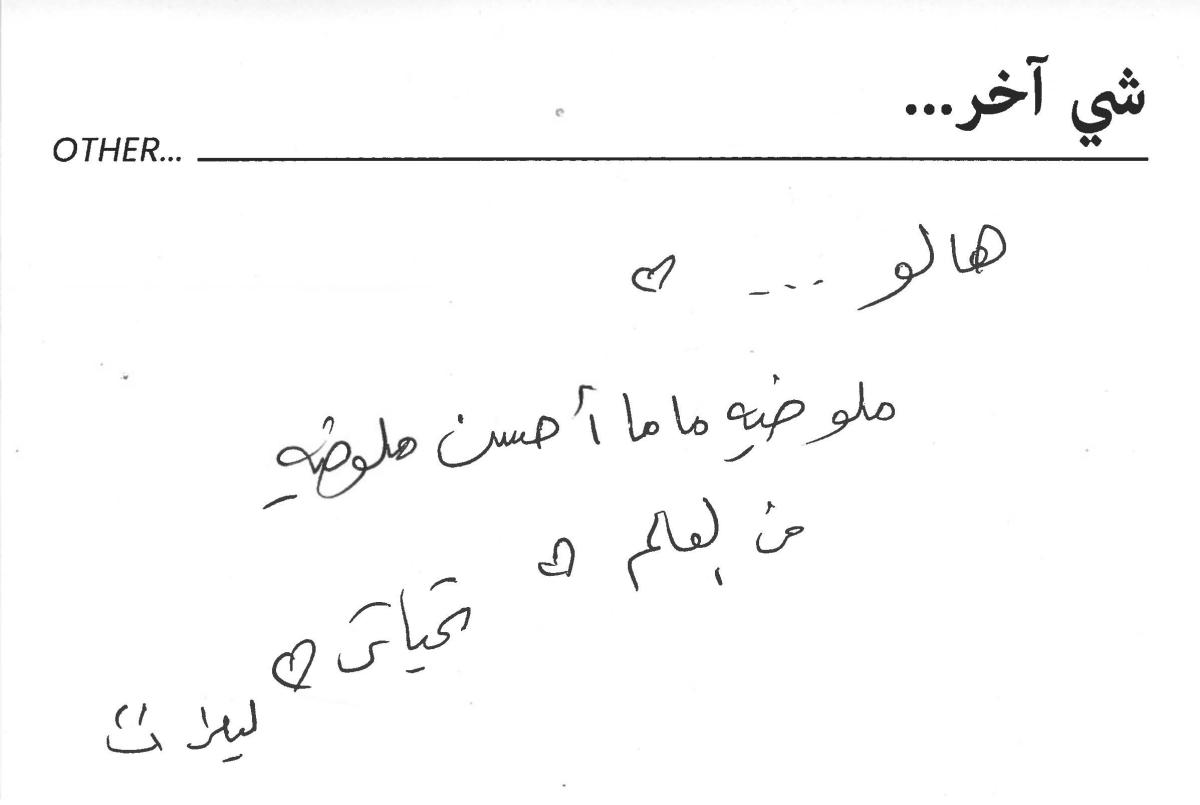 شي آخر...
OTHER...
هالو ...
ملوخيه ماما أحسن ملوخيه
من لعالم
تحياتي